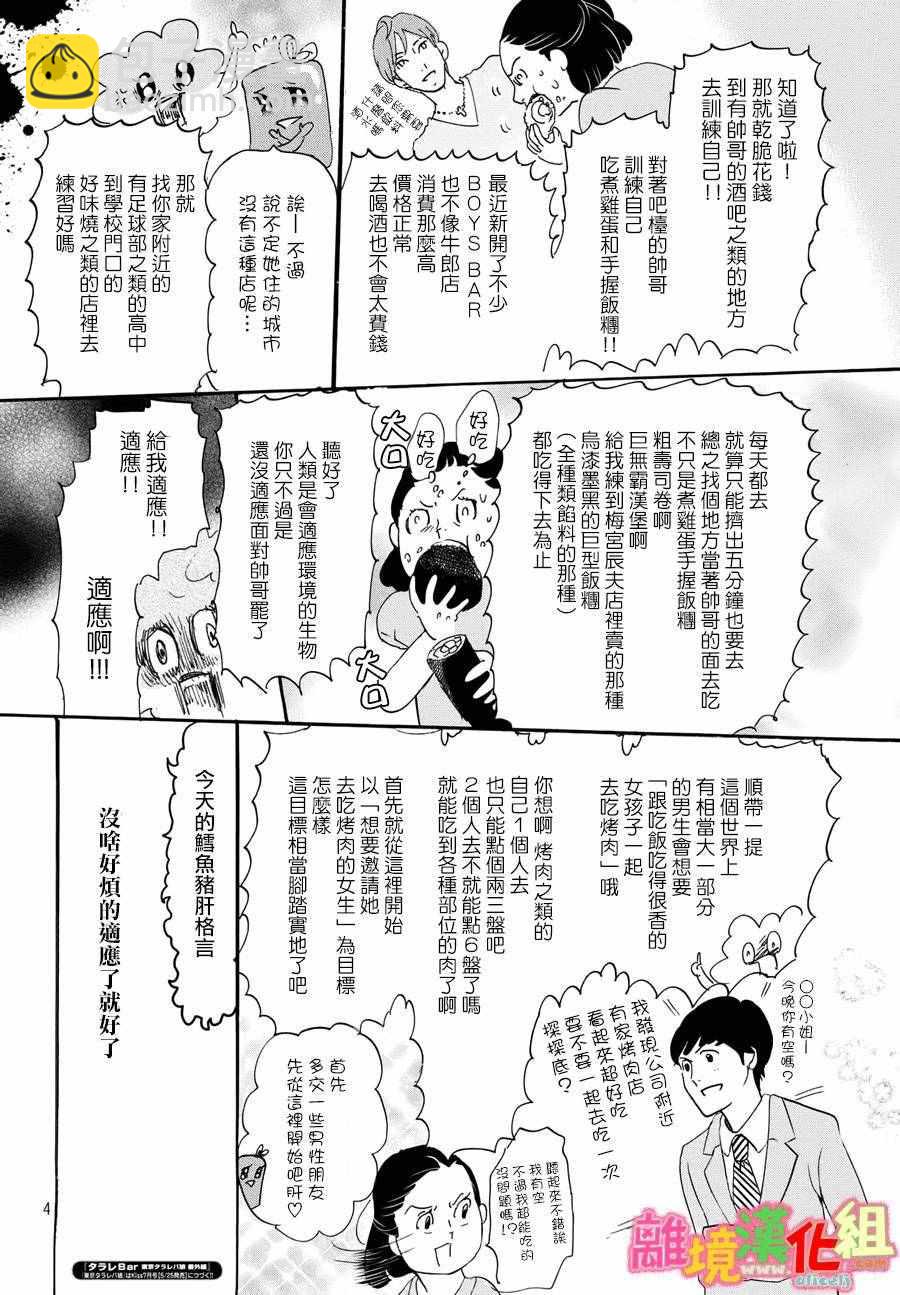 知道了啦！
那就乾脆花錢
到有帥哥的酒吧之類的地方
去訓練自己!!
對著吧檯的帥哥
訓練自己
吃煮雞蛋和手握飯糰!!
最近新開了不少
BOYS BAR
也不像牛郎店
消費那麼高
價格正常
去喝酒也不會太費錢
誒—不過
說不定她住的城市
沒有這種店呢…
那就
找你家附近的
有足球部之類的高中
到學校門口的
好味燒之類的店裡去
練習好嗎
每天都去
就算只能擠出五分鐘也要去
總之找個地方當著帥哥的面去吃
不只是煮雞蛋手握飯糰
粗壽司卷啊
巨無霸漢堡啊
給我練到梅宮辰夫店裡賣的那種
烏漆墨黑的巨型飯糰
(全種類餡料的那種)
都吃得下去為止
好吃
好吃
大口
大口
聽好了
人類是會適應環境的生物
你只不過是
還沒適應面對帥哥罷了
給我適應!!
適應!!
適應啊!!!
順帶一提
這個世界上
有相當大一部分
的男生會想要
「跟吃飯吃得很香的
女孩子一起
去吃烤肉」哦
你想啊 烤肉之類的
自己1個人去
也只能點個兩三盤吧
2個人去不就能點6盤了嗎
就能吃到各種部位的肉了啊
首先就從這裡開始
以「想要邀請她
去吃烤肉的女生」為目標
怎麼樣
這目標相當腳踏實地了吧
○○小姐—
今晚你有空嗎?
我發現公司附近
有家烤肉店
看起來超好吃
要不要一起去吃一次
探探底?
聽起來不錯誒
我有空
不過我超能吃的
沒問題嗎!?
首先
多交一些男性朋友
先從這裡開始吧肝♡
今天的鱈魚豬肝格言
沒啥好煩的適應了就好了
4
タラレBar 東京タラレバ娘 番外編
「東京タラレバ娘」はKiss7月号(5/25発売)につづく!!
離境漢化組